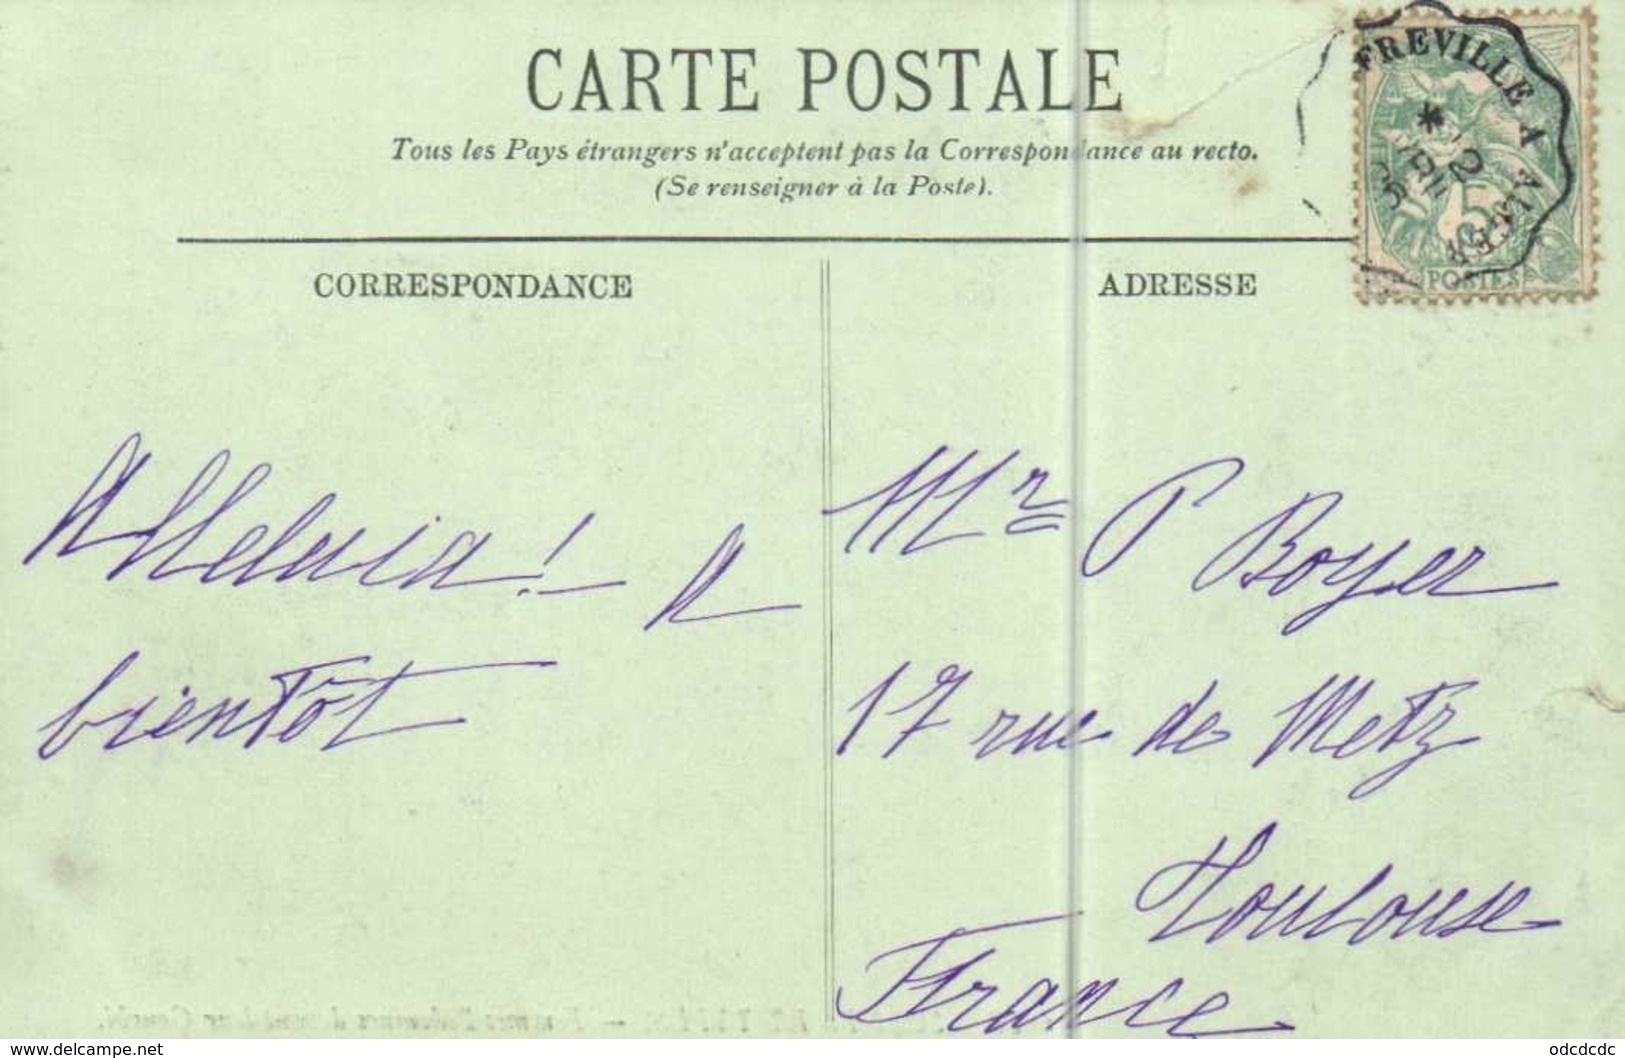 CARTE POSTALE
Tous les Pays étrangers n'acceptent pas la Correspondance au recto.
(Se renseigner à la Poste).
CORRESPONDANCE
ADRESSE
FREVILLE A ALGER
5
POSTES
Alleluia! A
bientôt
Mr P Boyer
17 rue de Metz
Toulouse
France
https://www.delcampe.net
odcdcdc